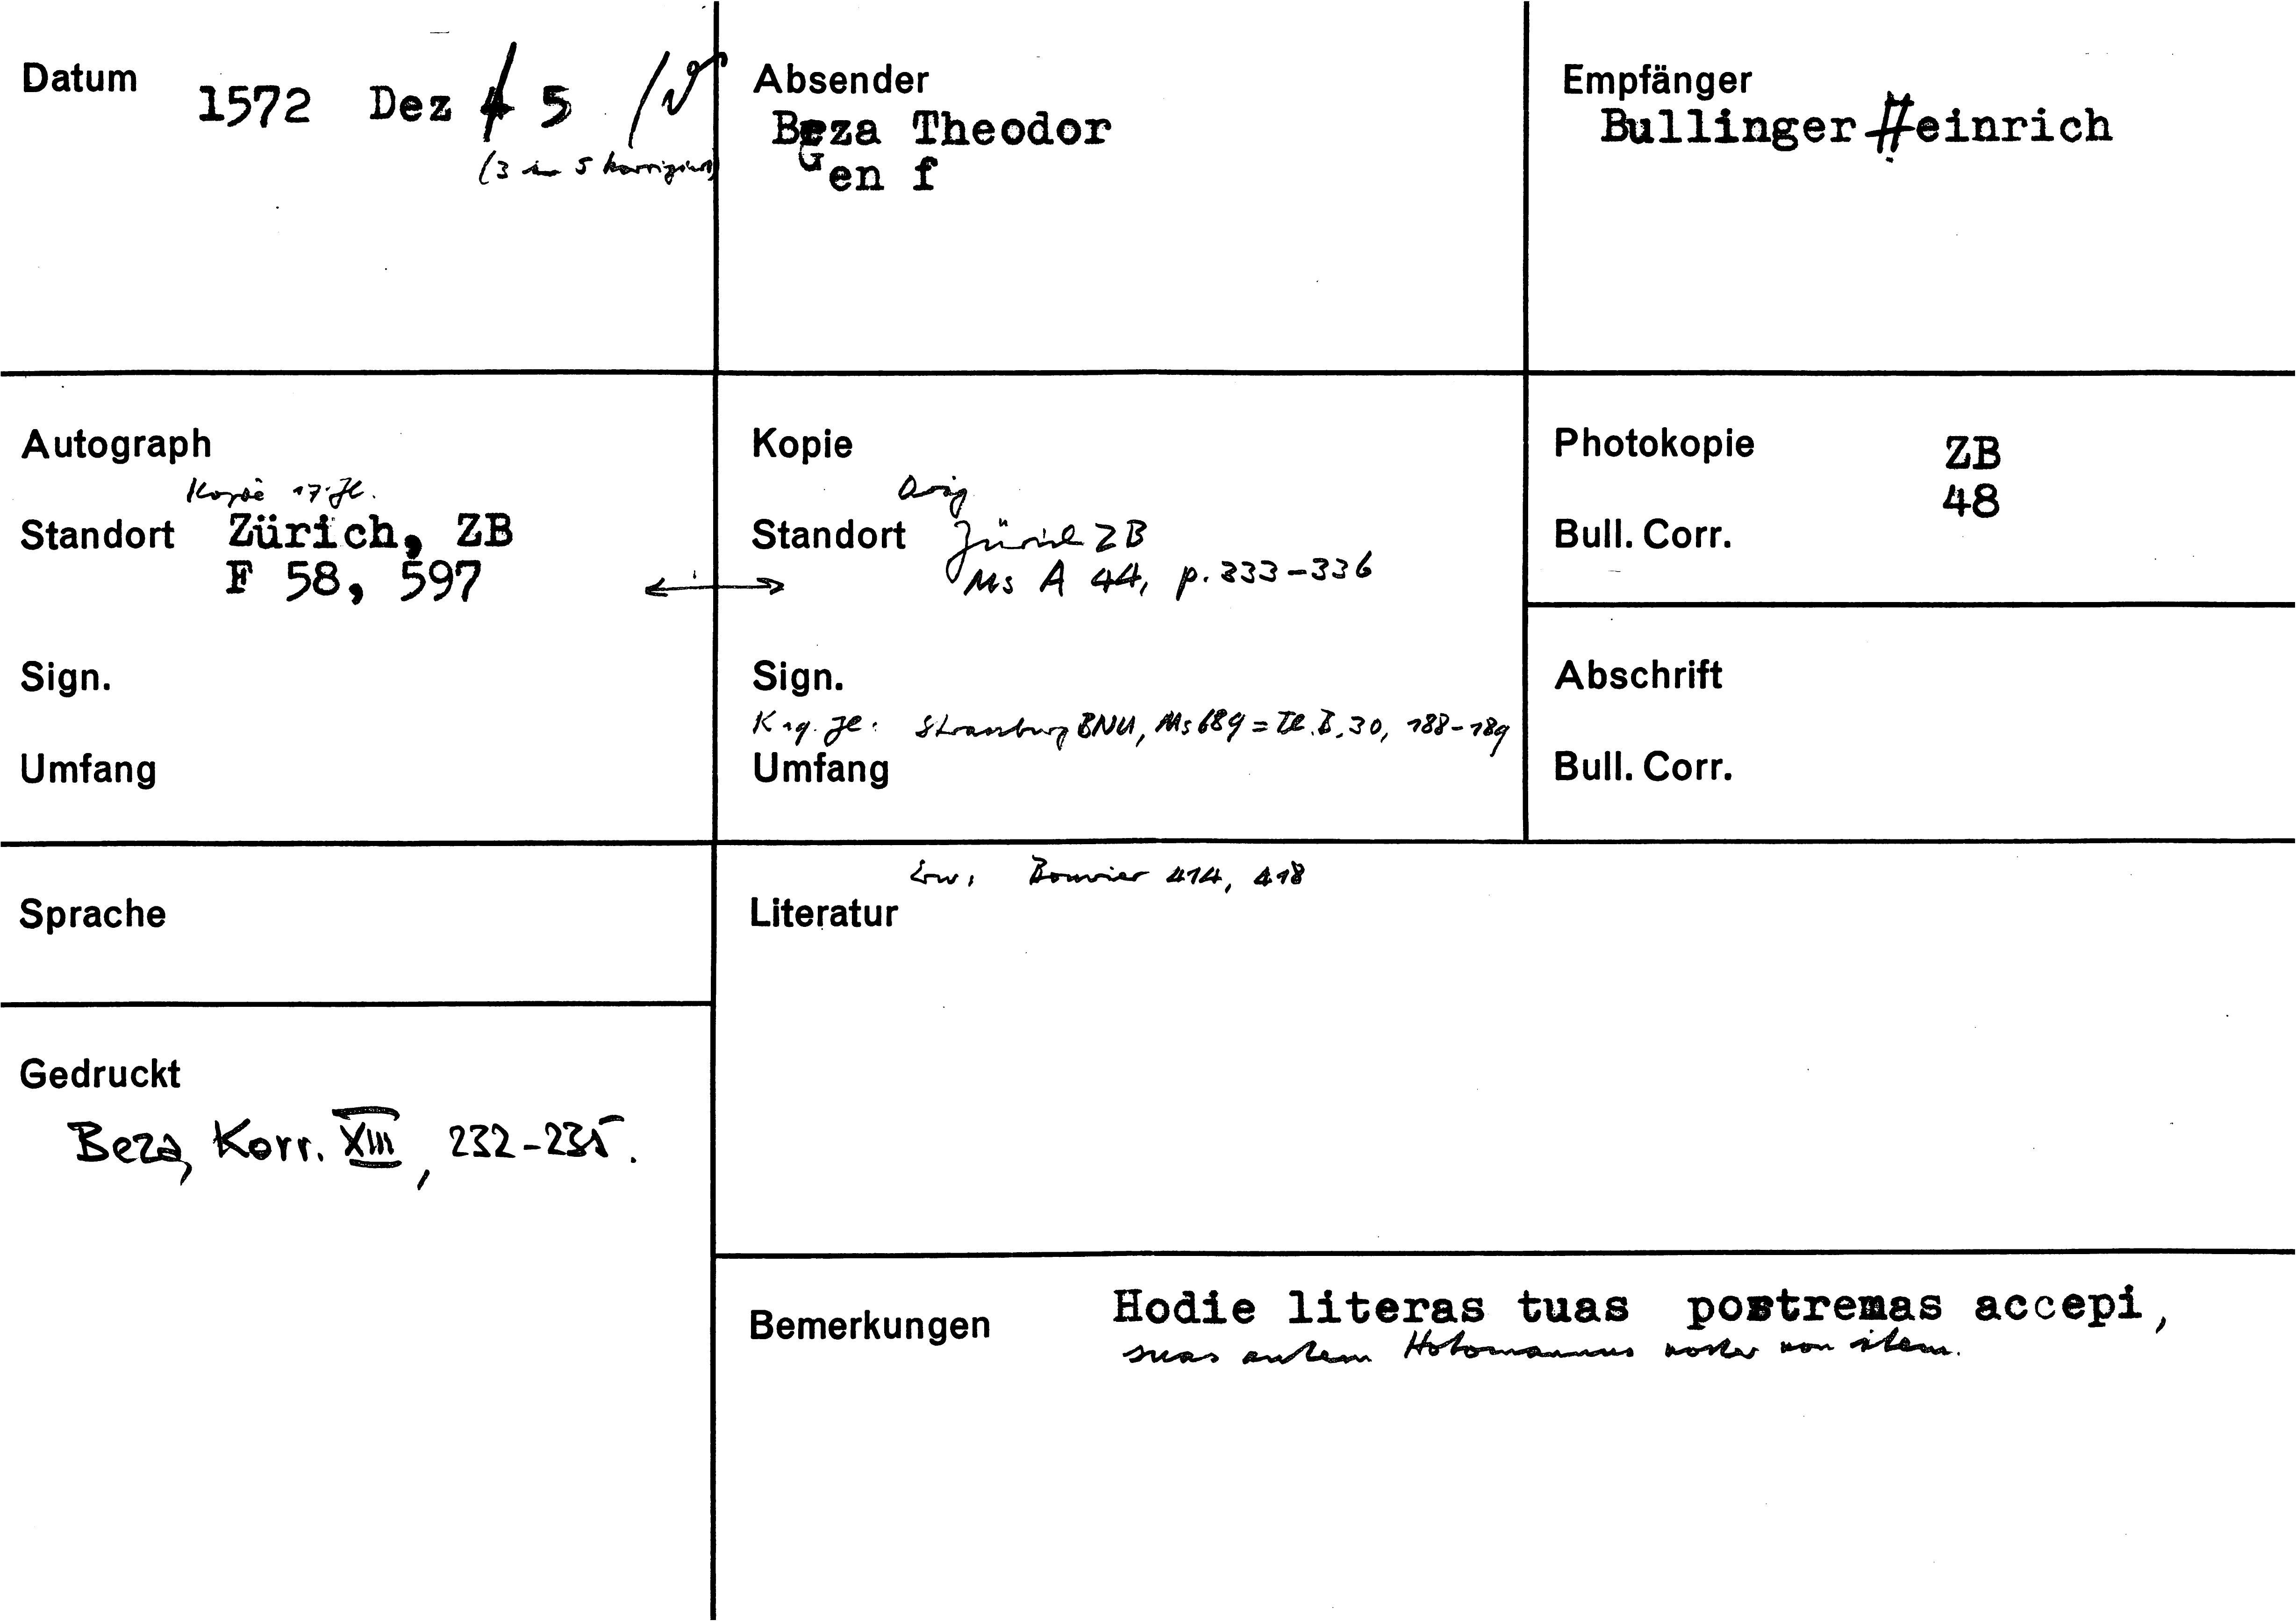 Datum
1572 Dez 4 5
(3 in 5 korrigiert)
Absender
Beza Theodor
Gen f
Empfänger
Bullinger Heinrich
Autograph
Kopie 17. Jh.
Standort Zürich, ZB
F 58, 597
Sign.
Umfang
Kopie
Orig
Standort Zürich ZB
Ms A 44, p. 333-336
Sign.
K 19. Jh: Strassburg BNU, Ms 689 = Th. B. 30, 188-189
Umfang
Photokopie ZB
48
Bull. Corr.
Abschrift
Bull. Corr.
Sprache
Gedruckt
Beza, Korr. XIII, 232-235.
Erw. Bouvier 414, 418
Literatur
Bemerkungen
Hodie literas tuas postremas accepi,
suas autem Hotomannus noster non item.